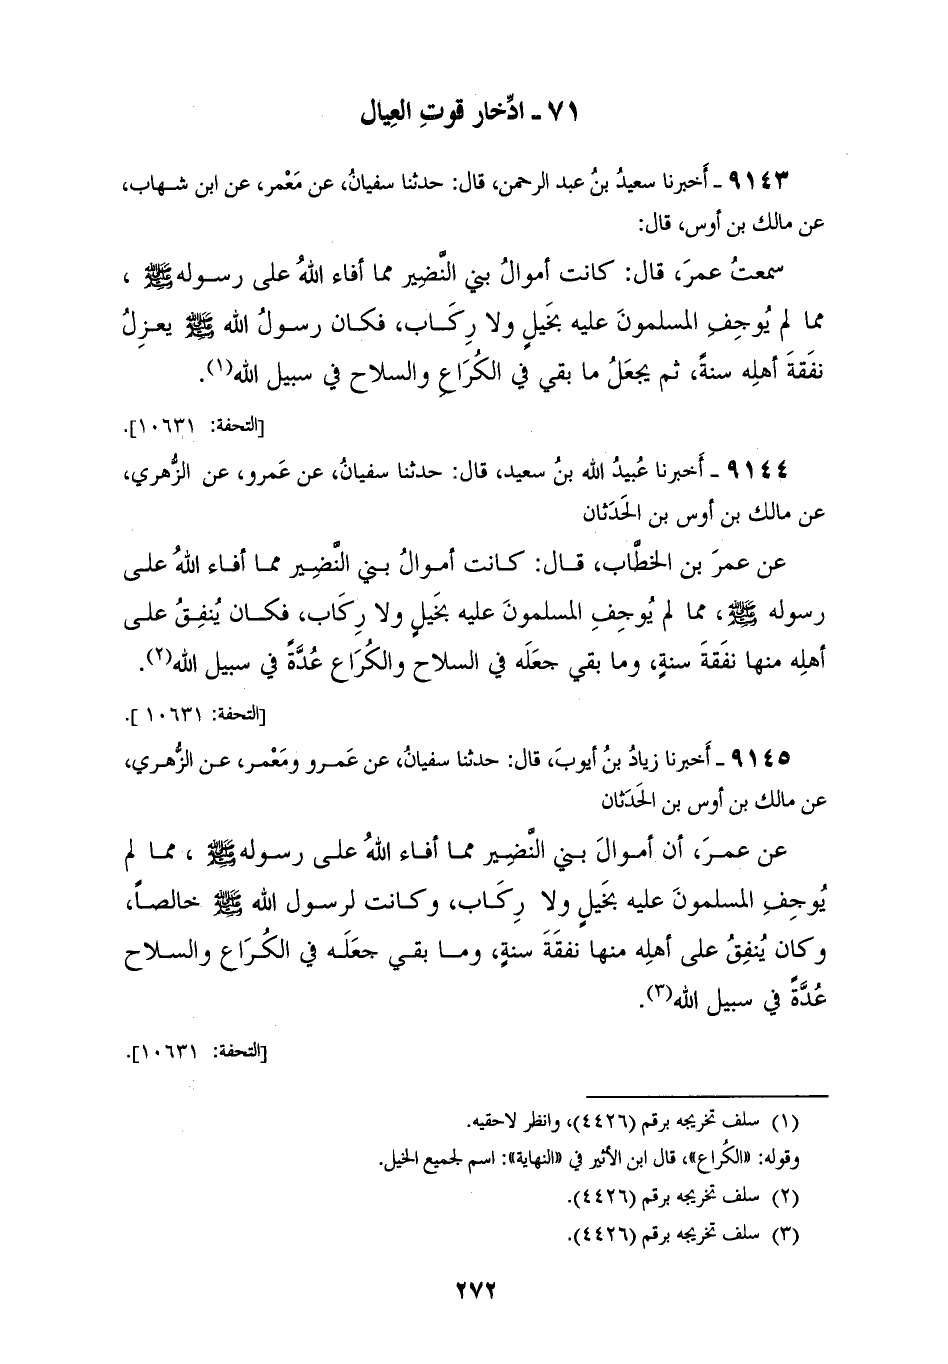 ٧١ ـ ادِّخار قوتِ العِيال
٩١٤٣ ـ أَخبرنا سعيدُ بنُ عبد الرحمن، قال: حدثنا سفيانُ، عن مَعْمر، عن ابن شهاب،
عن مالك بن أوس، قال:
سمعتُ عمرَ، قال: كانت أموالُ بني النَّضِير مما أفاء اللهُ على رسوله ﷺ ،
مما لم يُوجِفِ المسلمونَ عليه بخَيلٍ ولا رِكَاب، فكان رسولُ الله ﷺ يعزِلُ
نفَقةَ أهلِه سنةً، ثم يجعَلُ ما بقي في الكُرَاعِ والسلاح في سبيل الله(١).
[التحفة: ١٠٦٣١].
٩١٤٤ ـ أَخبرنا عُبيدُ الله بنُ سعيد، قال: حدثنا سفيانُ، عن عَمرو، عن الزُّهري،
عن مالك بن أوس بن الحَدَثان
عن عمرَ بن الخطَّاب، قال: كانت أموالُ بني النَّضِير مما أفاء اللهُ على
رسوله ﷺ، مما لم يُوجِفِ المسلمونَ عليه بخَيلٍ ولا رِكَاب، فكان يُنفِقُ على
أهلِه منها نفَقةَ سنةٍ، وما بقي جعَلَه في السلاح والكُرَاع عُدَّةً في سبيل الله(٢).
[التحفة: ١٠٦٣١ ].
٩١٤٥ ـ أَخبرنا زيادُ بنُ أيوبَ، قال: حدثنا سفيانُ، عن عَمرو ومَعْمر، عن الزُّهري،
عن مالك بن أوس بن الحَدَثان
عن عمرَ، أن أموالَ بني النَّضِير مما أفاء اللهُ على رسوله ﷺ ، مما لم
يُوجِفِ المسلمونَ عليه بخَيلٍ ولا رِكَاب، وكانت لرسول الله ﷺ خالصاً،
وكان يُنفِقُ على أهلِه منها نفقَةَ سنةٍ، وما بقي جعَلَه في الكُرَاع والسلاح
عُدَّةً في سبيل الله(٣).
[التحفة: ١٠٦٣١].
(١) سلف تخريجه برقم (٤٤٢٦)، وانظر لاحقيه.
وقوله: «الكُراع»، قال ابن الأثير في «النهاية»: اسم لجميع الخيل.
(٢) سلف تخريجه برقم (٤٤٢٦).
(٣) سلف تخريجه برقم (٤٤٢٦).
٢٧٢